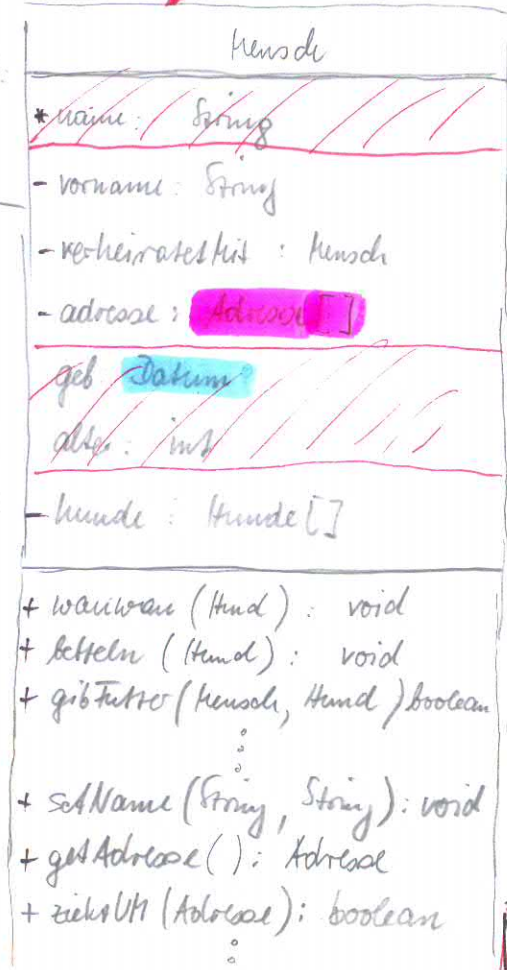 Mensch
* name : String
- vorname : String
- verheiratetMit : Mensch
- adresse : Adresse []
geb Datum
alter : int
- hunde : Hunde []
+ wauwau (Hund) : void
+ betteln (Hund) : void
+ gibFutter (Mensch, Hund) boolean
+ setName (String, String) : void
+ getAdresse () : Adresse
+ ziehtUM (Adresse) : boolean